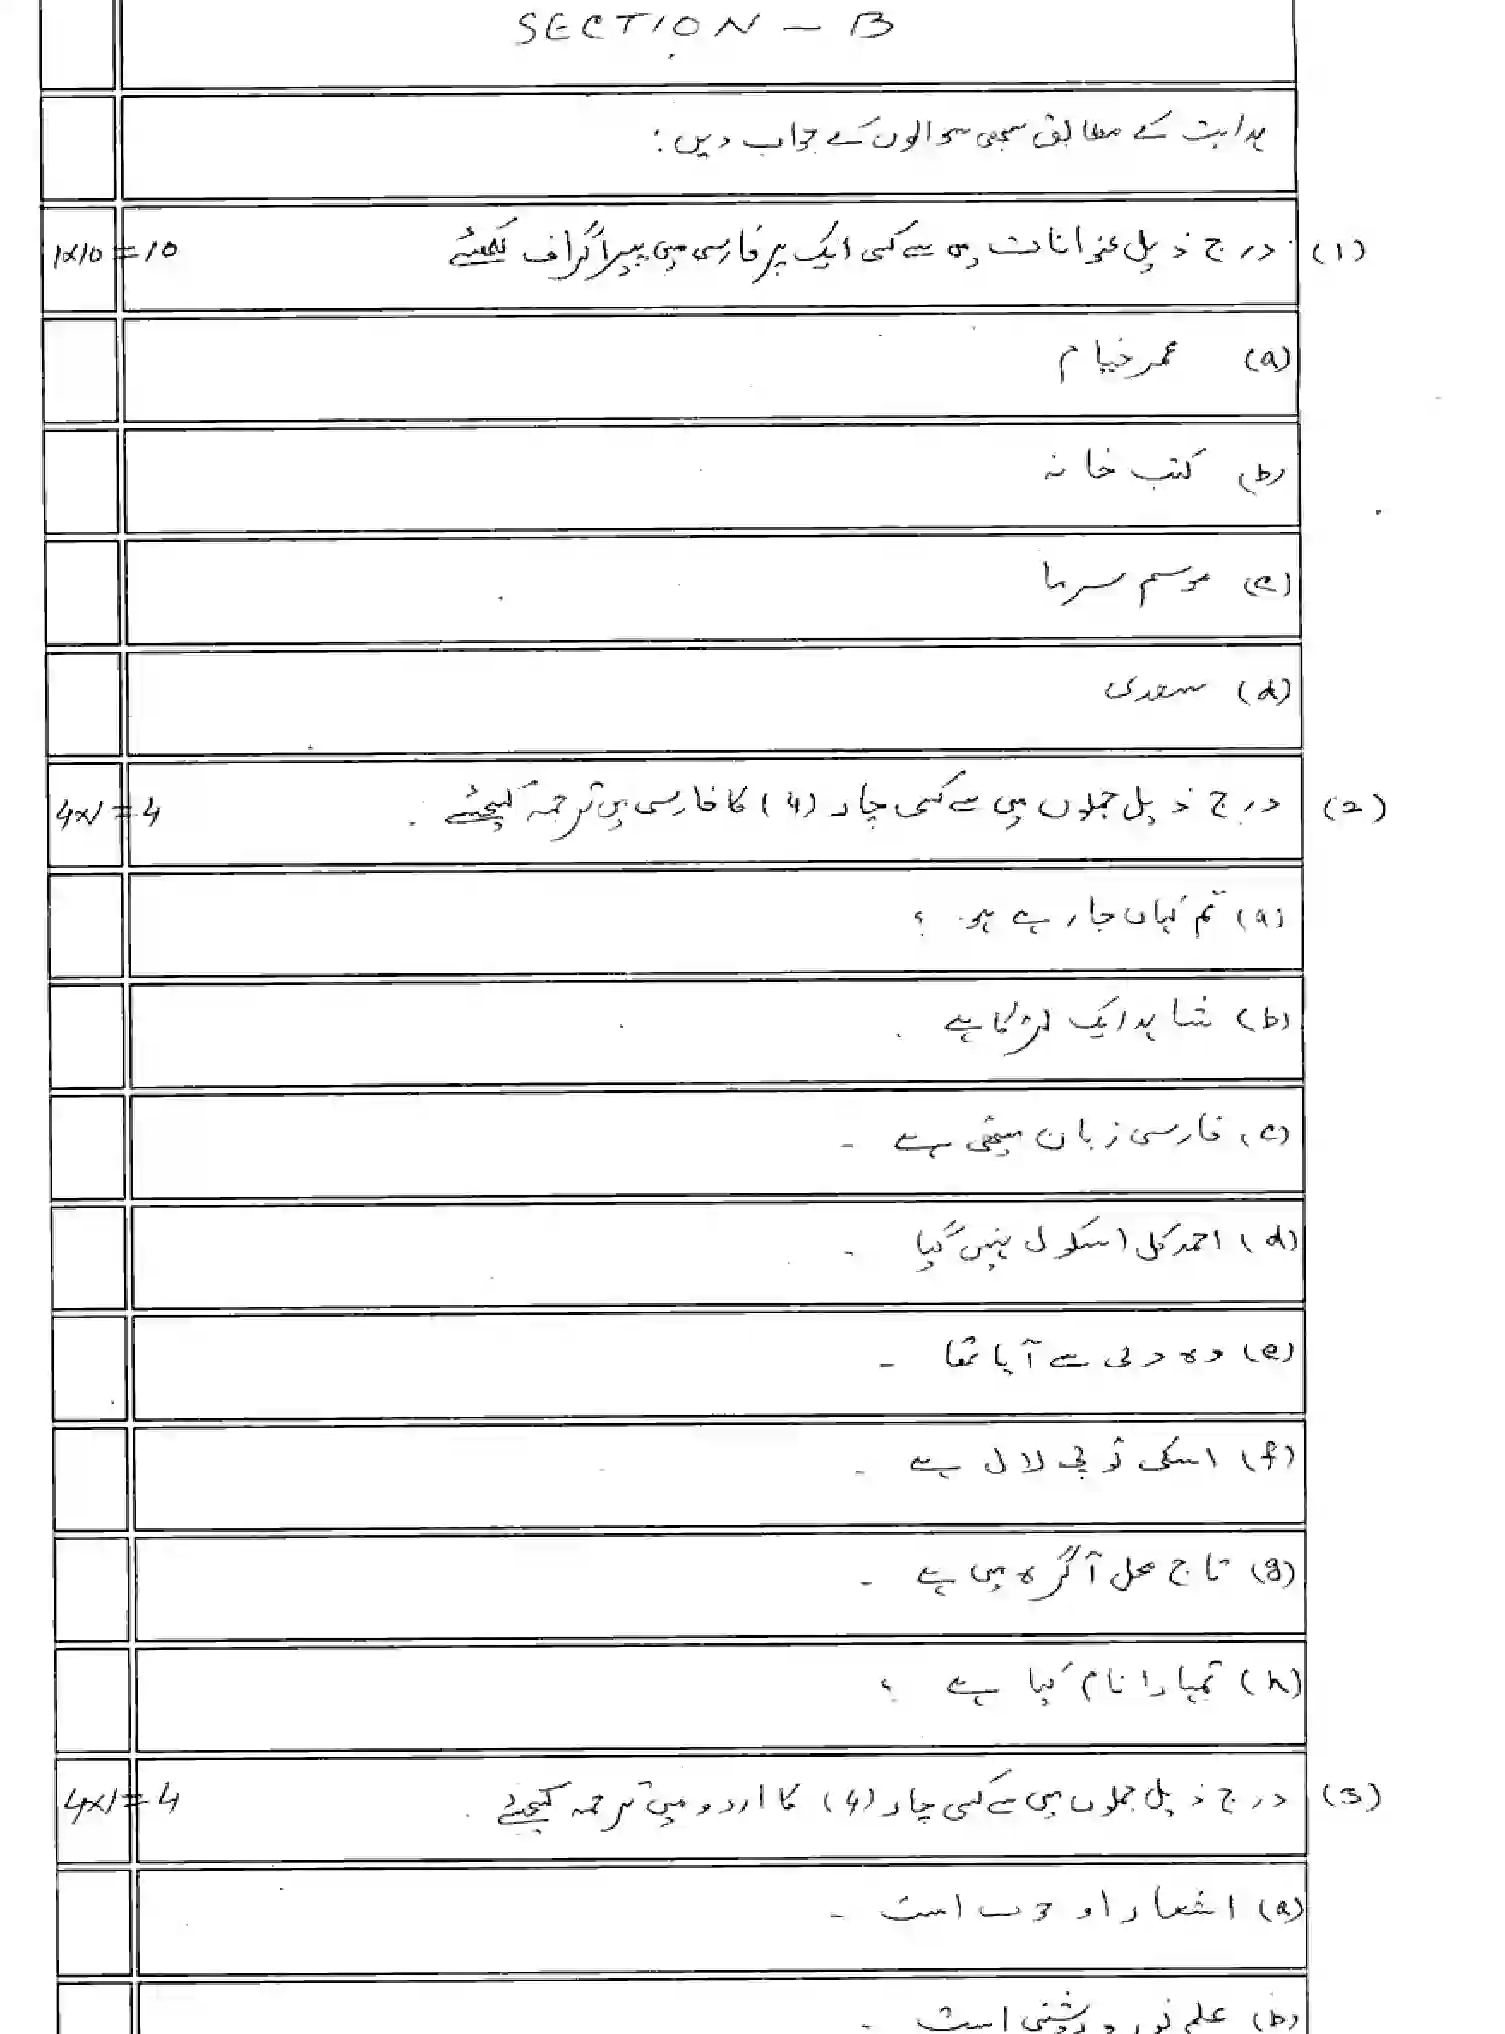 SECTION - B
ہدایت کے مطابق سبھی سوالوں کے جواب دیں:
(1) درج ذیل عنوانات میں سے کسی ایک پر فارسی میں پیراگراف لکھئے 1x10=10
(a) عمر خیام
(b) کتب خانہ
(c) موسم سرما
(d) سعدی
(2) درج ذیل جملوں میں سے کسی چار (4) کا فارسی میں ترجمہ کیجئے . 4x1=4
(a) تم کہاں جا رہے ہو ؟
(b) شاہد ایک لڑکا ہے .
(c) فارسی زبان میٹھی ہے ۔
(d) احمد کل اسکول نہیں گیا ۔
(e) وہ دلی سے آیا تھا ۔
(f) اسکی ٹوپی لال ہے ۔
(g) تاج محل آگرہ میں ہے ۔
(h) تمہارا نام کیا ہے ؟
(3) درج ذیل جملوں میں سے کسی چار (4) کا اردو میں ترجمہ کیجئے . 4x1=4
(a) اشعار او است ۔
(b) علم نور و روشنی است ۔